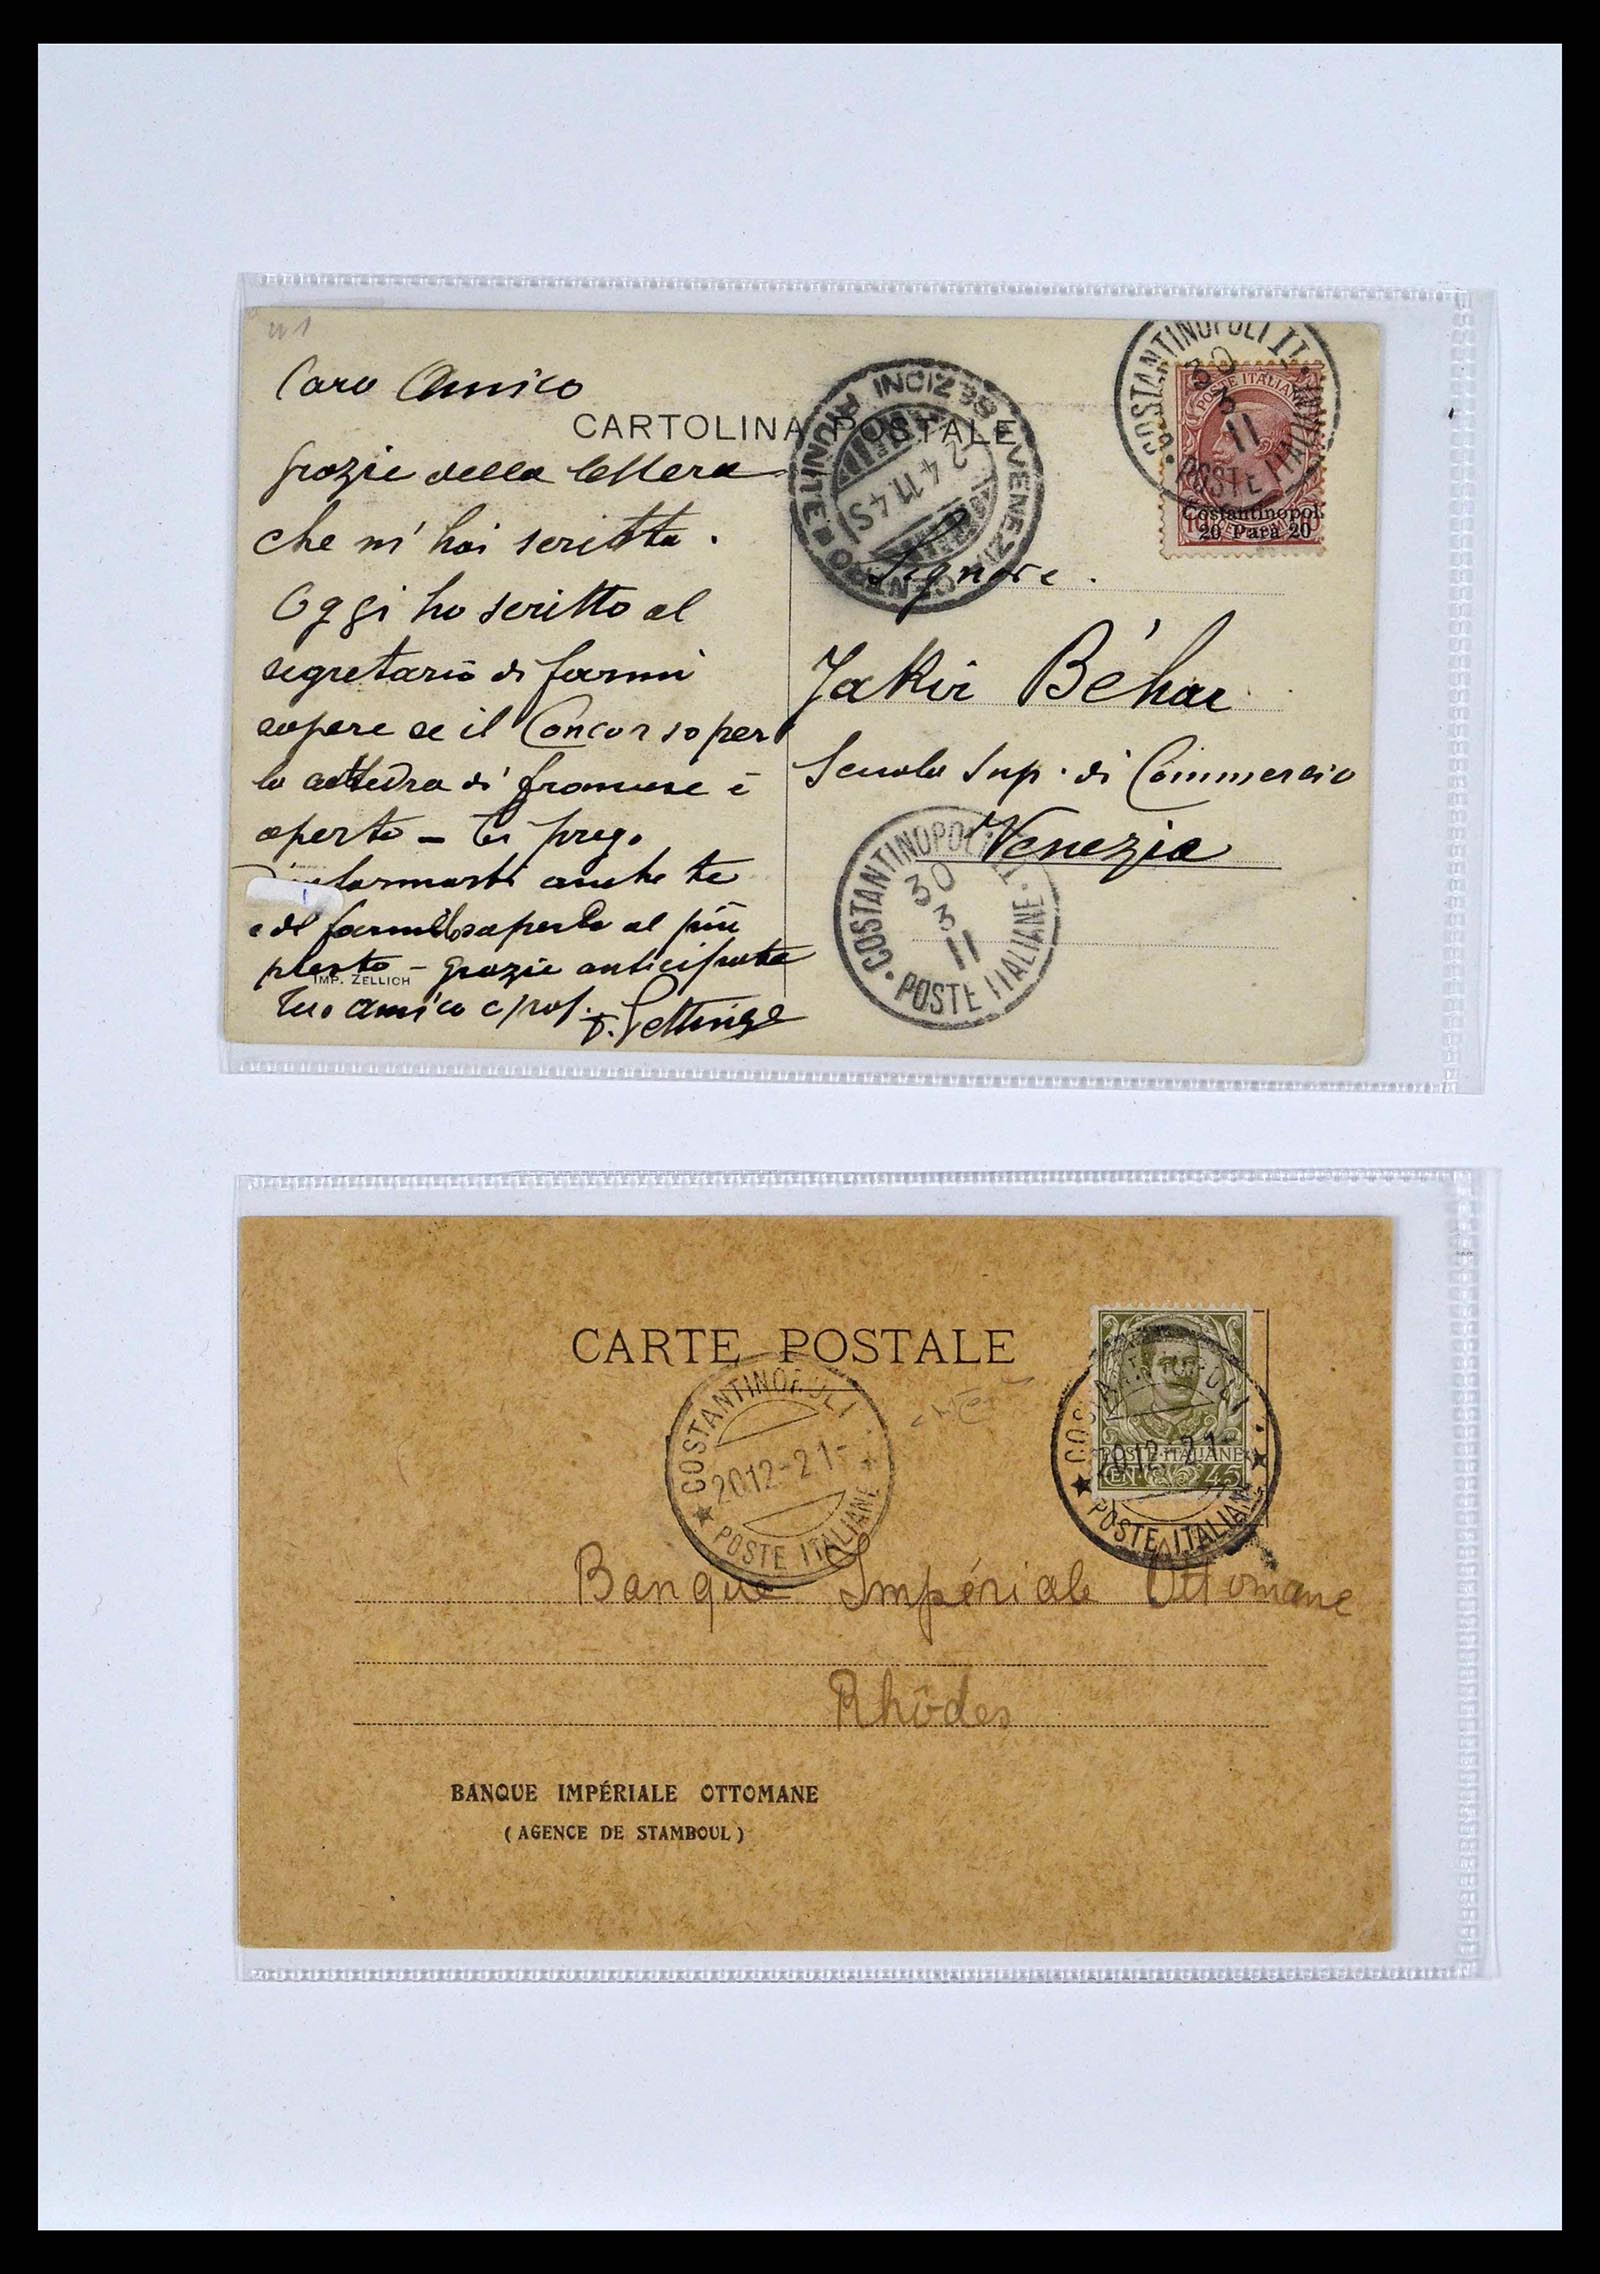 Caro Amico
CARTOLINA POSTALE
grazie della lettera
che m'hai scritta.
Oggi ho scritto al
segretario di farmi
sapere se il Concorso per
la cattedra di francese è
aperto – Ti prego
informarti anche te
e di farmelo saperlo al più
presto – grazie anticipate
IMP. ZELLICH
Tuo amico
Signore.
Jakir Béhar
Scuola Sup. di Commercio
Venezia
COSTANTINOPOLI
30
3
11
POSTE ITALIANE
POSTE ITALIANE
Costantinopoli
20 Para 20
VENEZIA CENTRO
SEZIONI RIUNITE
2 4 11 4S
COSTANTINOPOLI
30
3
11
POSTE ITALIANE
CARTE POSTALE
COSTANTINOPOLI
20 12 - 21 -
POSTE ITALIANE
POSTE ITALIANE
CEN. 45
COSTANTINOPOLI
20 12 - 21 -
POSTE ITALIANE
Banque Impériale Ottomane
Rhôdes
BANQUE IMPÉRIALE OTTOMANE
( AGENCE DE STAMBOUL )